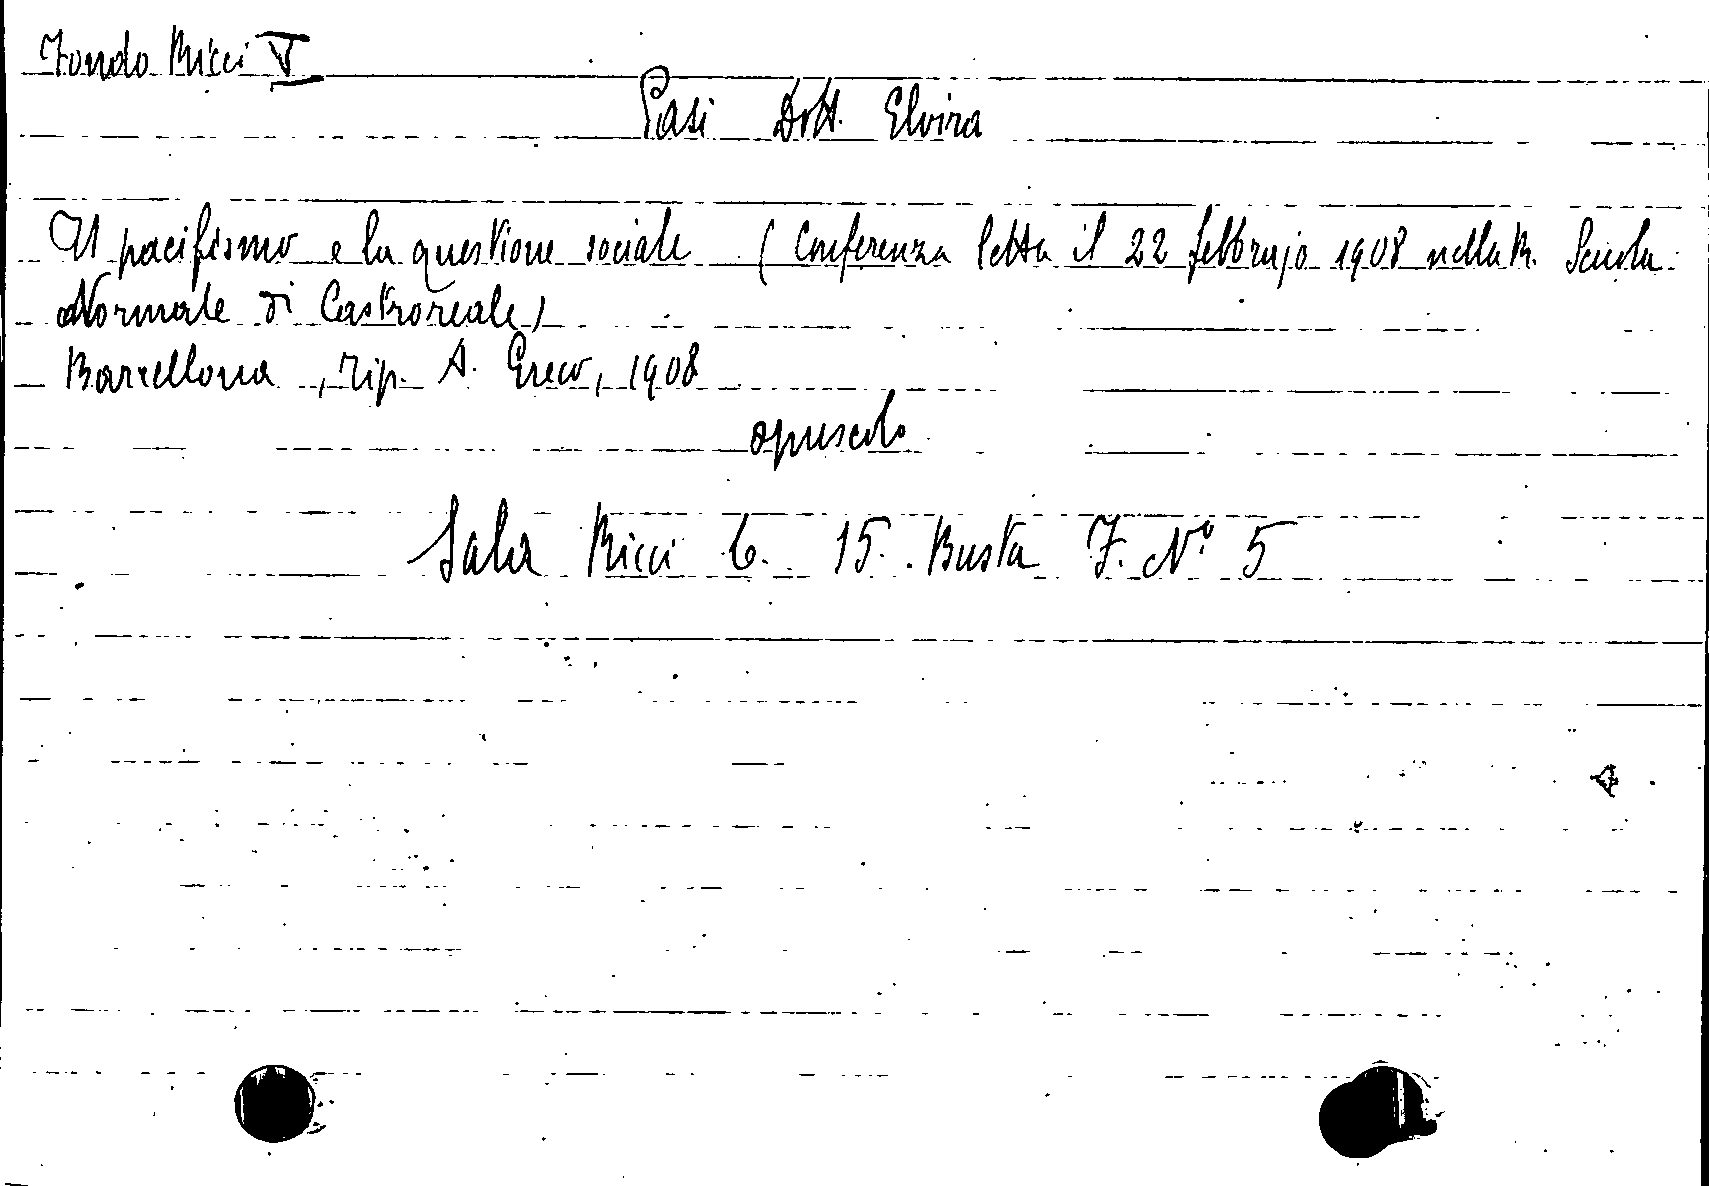 Fondo Ricci V
Pasi Dott. Elvira
Il pacifismo e la questione sociale (Conferenza letta il 22 febbrajo 1908 nella R. Scuola
Normale di Castroreale)
Barcellona, tip. A. Greco, 1908
opuscolo
Sala Ricci 6. 15. Busta F. N.° 5